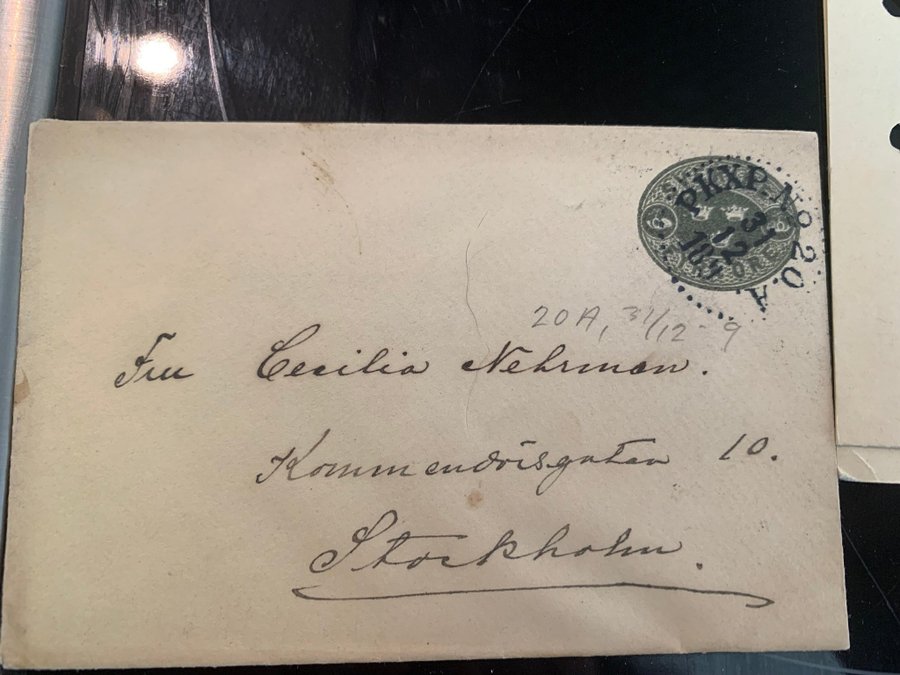 PKXP. No 20. A.
31
12
189
20 A, 31/12 - 9
Fru Cecilia Nehrman.
Kommendörsgatan 10.
Stockholm.